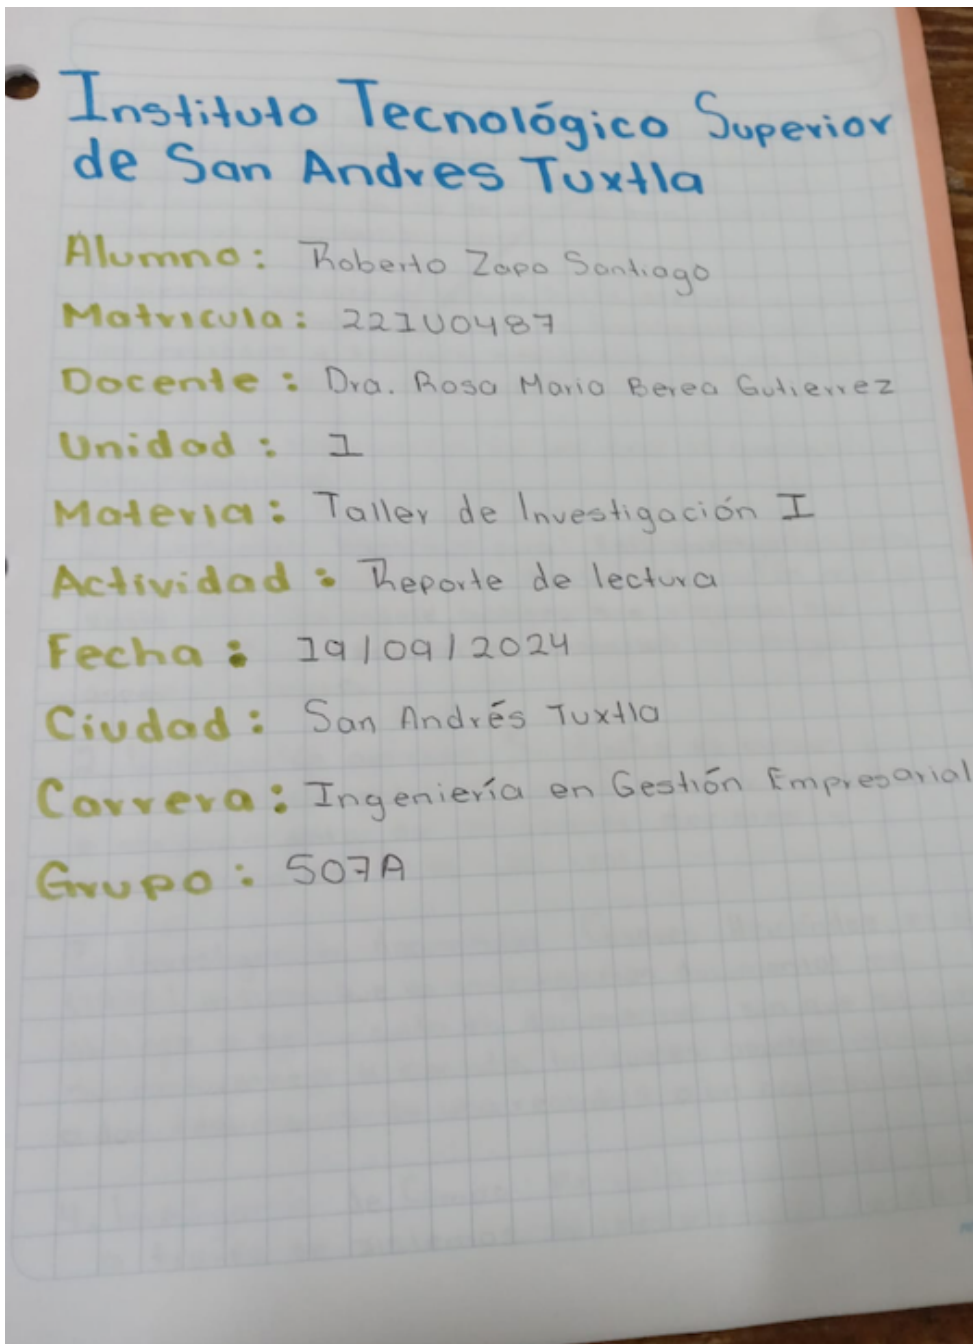 Instituto Tecnológico Superior
de San Andres Tuxtla
Alumno: Roberto Zapo Santiago
Matricula: 221U0487
Docente: Dra. Rosa Maria Berea Gutierrez
Unidad: I
Materia: Taller de Investigación I
Actividad: Reporte de lectura
Fecha: 19/09/2024
Ciudad: San Andrés Tuxtla
Carrera: Ingeniería en Gestión Empresarial
Grupo: 507A